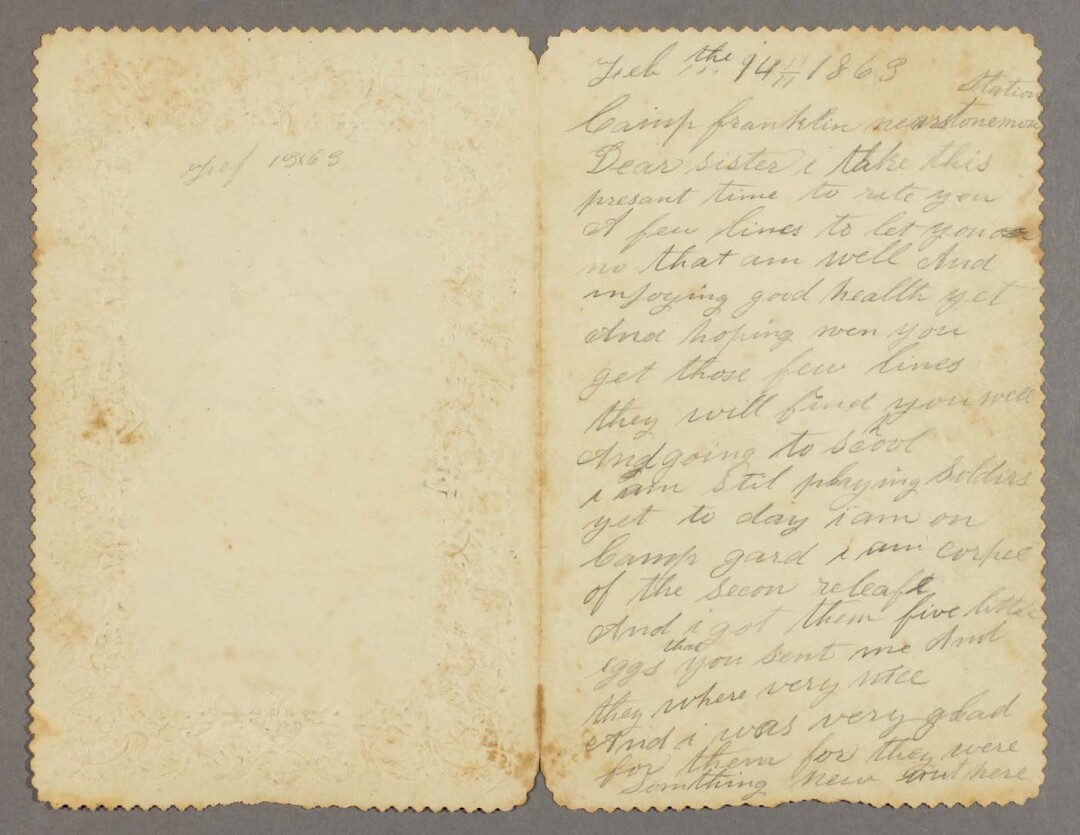 Feb 1863
Feb the 14 1863
Station
Camp franklin near stonemon
Dear sister i take this
presant time to rite you
A few lines to let you
no that am well And
injoying good health yet
And hoping wen you
get those few lines
they will find you well
And going to scool
i am stil playing Soldirs
yet to day i am on
Camp gard i am corpel
of the secon releaf
And i got them five little
eggs that you sent me And
they where very nice
And i was very glad
for them for they were
Something new out here